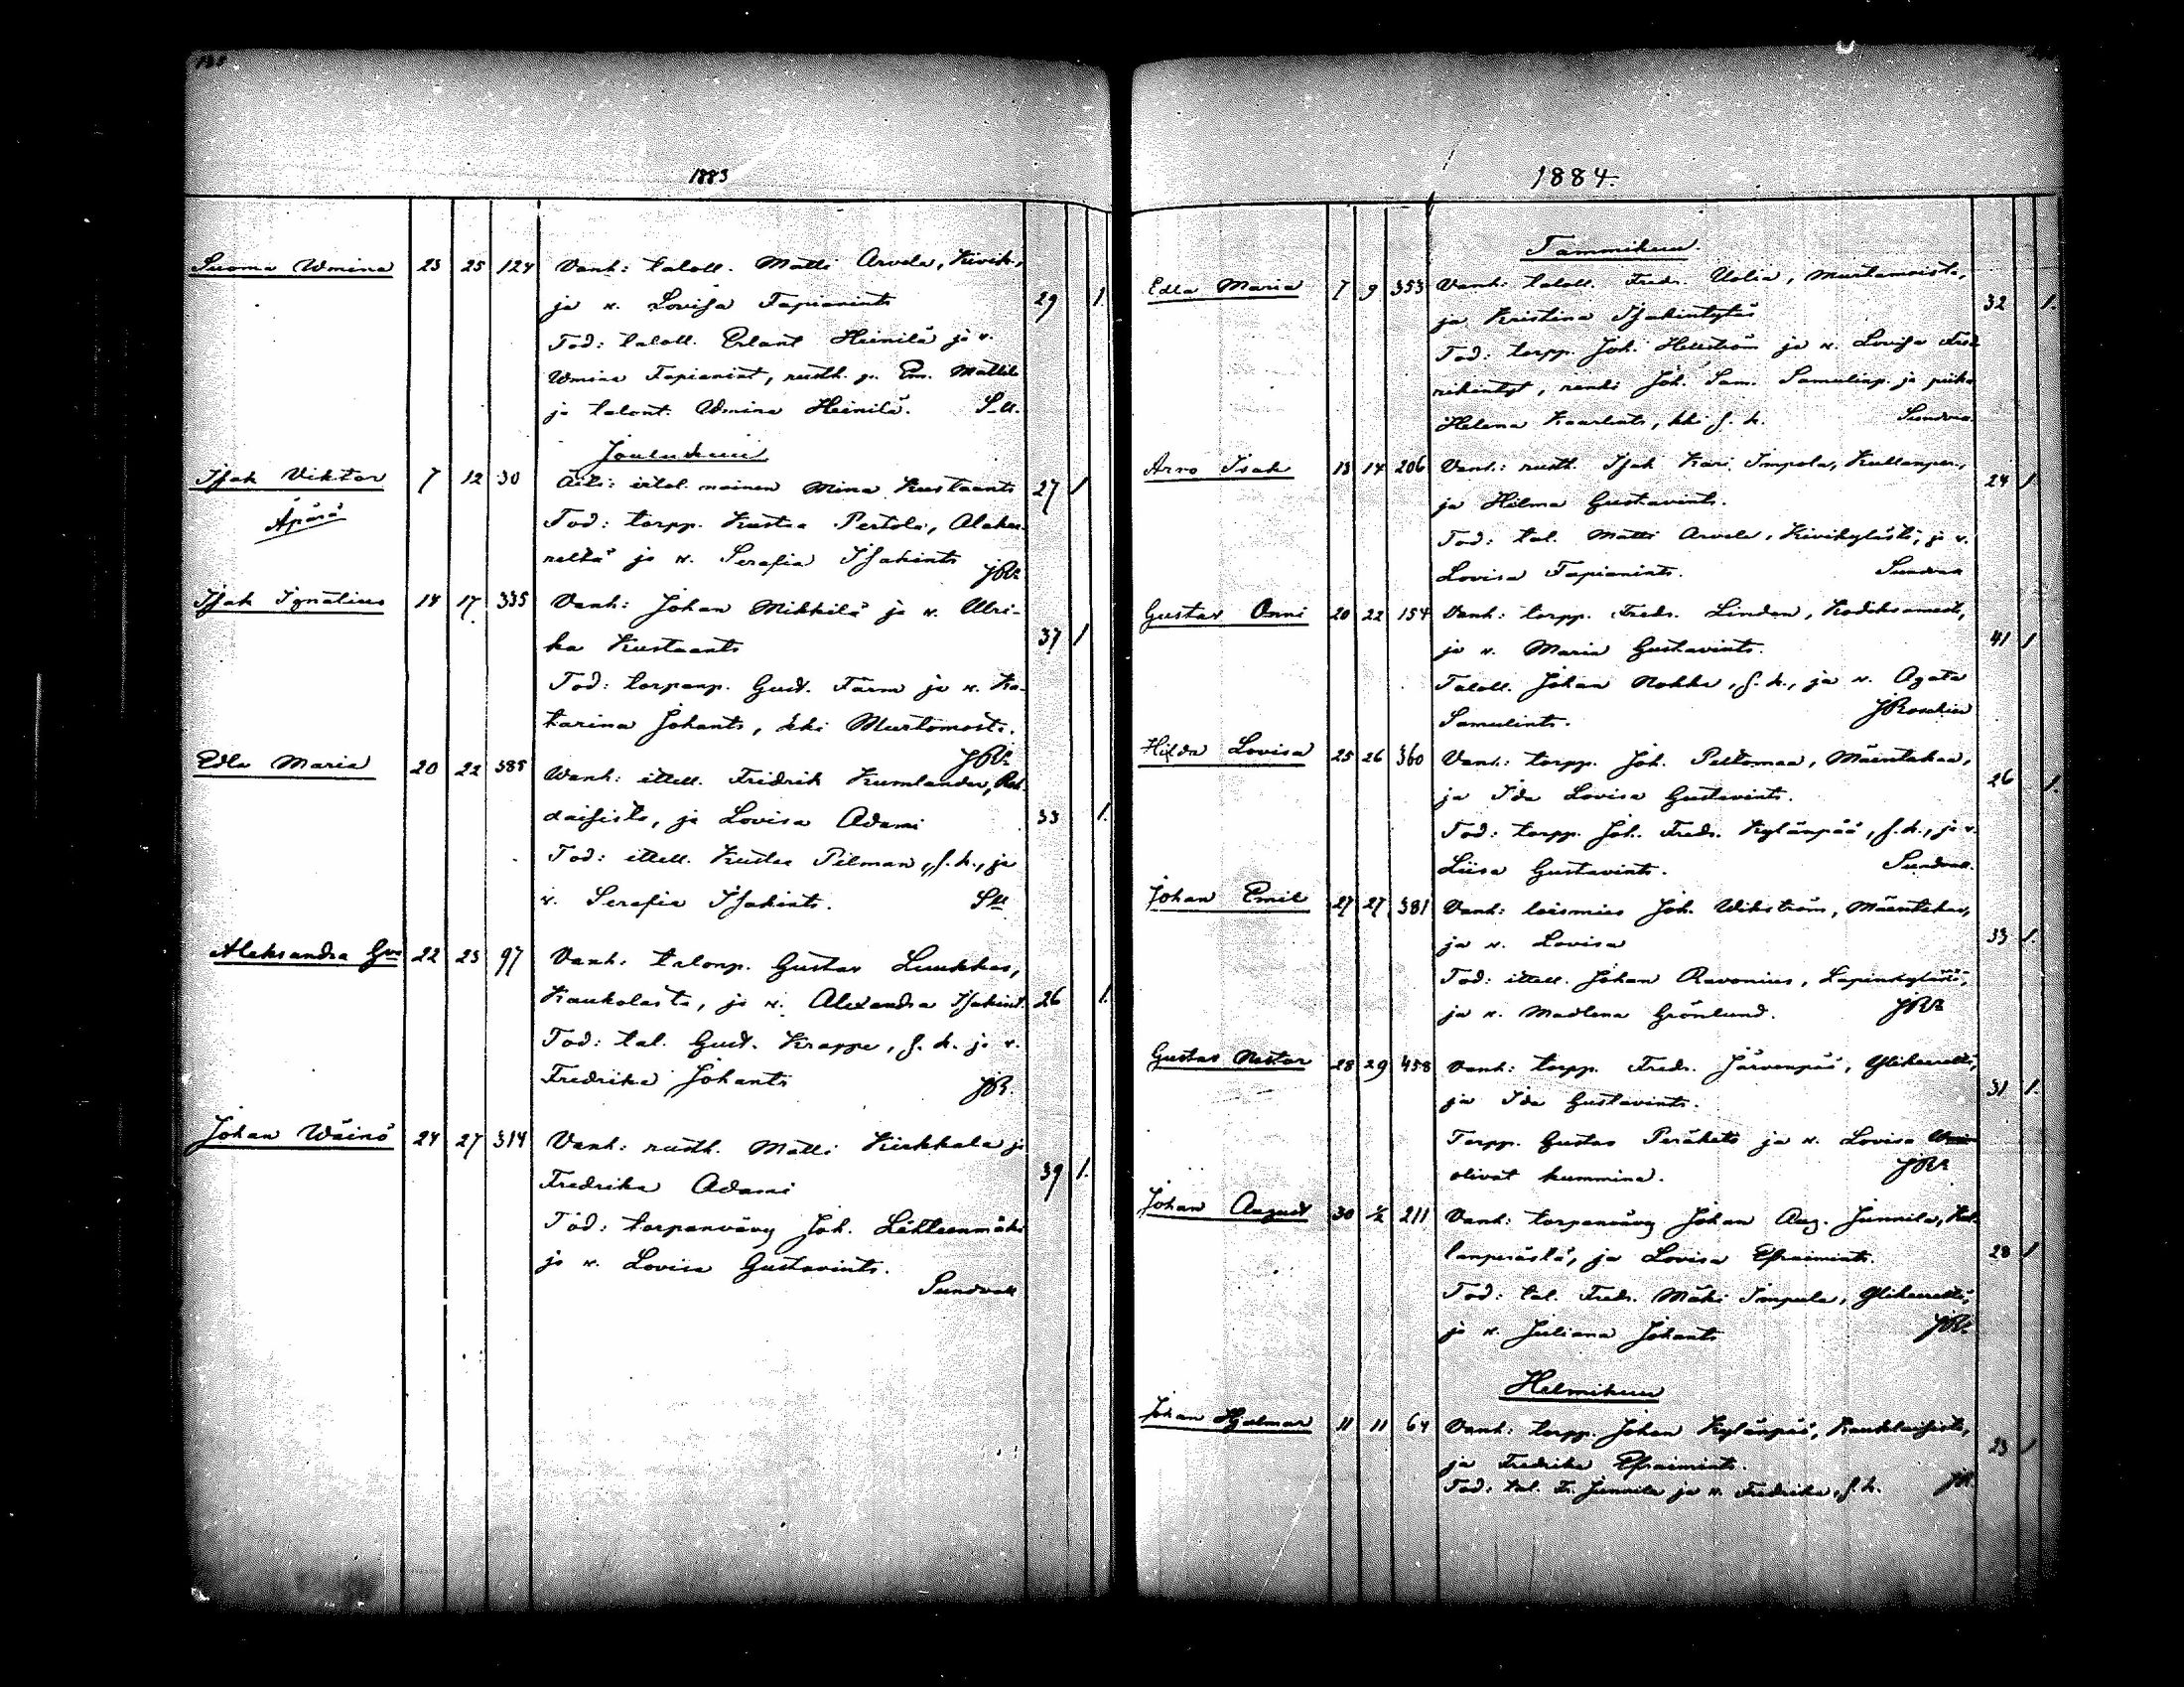 1883
Suoma Wmina 23 25 124 Vanh: taloll. Matti Arvela, Kivik.,
ja v. Lovisa Tapianints 29 1.
Tod: taloll. Erlant Heinilä ja v.
Wmina Tapianint, rusth. p. Em. Mattila
ja talont. Wmina Heinilä. S-ll.
Joulukuu
Isak Viktor 7 12 30 Äiti: irtol. nainen Mina Kustaants 27 1
Äpärä Tod: torpp. Kustaa Pertola, Alakee-
reltä ja v. Serafia Isakints JR.
Isak Ignatius 14 17 335 Vanh: Johan Mikkilä ja v. Ulri-
ka Kustaants 37 1
Tod: torpanp. Gust. Farm ja v. Ka-
tarina Johants, kki Murtamost.
JR.
Edla Maria 20 22 385 Vanh: ittell. Fridrik Kumlander,
ja Lovisa Adami 33 1.
Tod: ittell. Kustaa Pilman, s.k., ja
v. Serafia Isakints. Sll
Aleksandra 22 25 97 Vanh: talonp. Gustav Luukkas,
Kaukolasta, ja v. Alexandra Isakint. 26 1.
Tod: tal. Gust. Krappe, s.k. ja v.
Fredrika Johants JR.
Johan Wäinö 24 27 314 Vanh: rusth. Matti Kirkkala ja
Fredrika Adami 39 1.
Tod: torpanvävy Joh. Lähteenmäki
ja v. Lovisa Gustavints.
Sundvall
1884.
Tammikuu.
Edla Maria 7 9 353 Vanh: taloll. Fredr. Uolia, Murtamoista,
ja Kristina Isakintytär 32 1.
Tod: torpp. Joh. Hellström ja v. Lovisa Fred
rikintyt, renki Joh. Sam. Samulinp. ja piika
Helena Kaarlents, kki s.k. Sundvall
Arvo Isak 13 14 206 Vanh: rusth. Isak Kari Impola, Kullanper.,
ja Hilma Gustavints. 24 1.
Tod: tal. Matti Arvela, Kivikylästä, ja v.
Lovisa Tapianints. Sundvall
Gustav Onni 20 22 154 Vanh: torpp. Fredr. Linden, Kodiksamist,
ja v. Maria Gustavints. 41 1
Taloll. Johan Nokka, s.k., ja v. Agata
Samulints. JRoschier
Hilda Lovisa 25 26 360 Vanh: torpp. Joh. Peltomaa, Mäentakaa,
ja Ida Lovisa Gustavints. 26 1.
Tod: torpp. Joh. Fredr. Kylänpää, s.k., ja v.
Liisa Gustavints. Sundvall.
Johan Emil 27 27 381 Vanh: loismies Joh. Wikström, Mäentakaa,
ja v. Lovisa 33 1.
Tod: ittell. Johan Ravonius, Lapinkylästä,
ja v. Madlena Grönlund. JR.
Gustav Nestor 28 29 458 Vanh: torpp. Fredr. Järvenpää, Ylikeereltä,
ja Ida Gustavints. 31 1.
Torpp. Gustav Peräketo ja v. Lovisa
olivat kummina. JR.
Johan August 30 1/2 211 Vanh: torpanvävy Johan Aug. Junnila, Kul-
lanperästä, ja Lovisa Efraimints. 28 1
Tod: tal. Fredr. Mäki Impola, Ylikeereltä,
ja v. Juliana Johants JR.
Helmikuu
Johan Hjalmar 11 11 64 Vanh: torpp. Johan Kylänpää,
ja Fredrika Efraimints. 23 1
Tod: tal. Fr. Junnila ja v. Fredrika, s.k. JR.